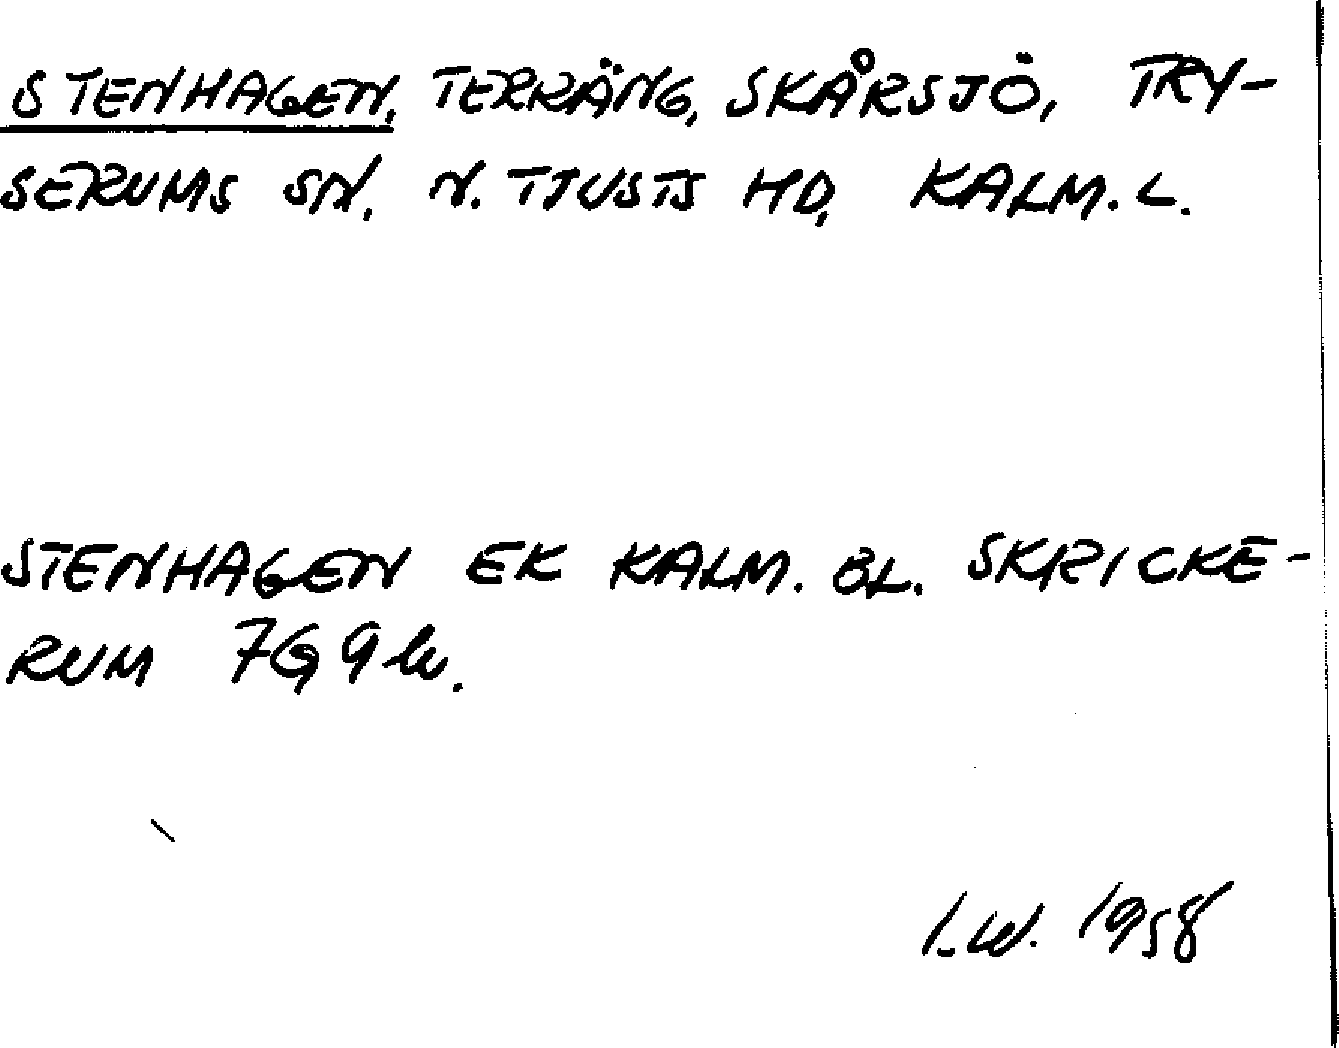 STENHAGEN, TERRÄNG, SKÅRSJÖ, TRY-
SERUMS SN, N. TJUSTS HD, KALM. L.
STENHAGEN EK KALM. BL. SKRICKE-
RUM 7G9h.
I.W. 1958